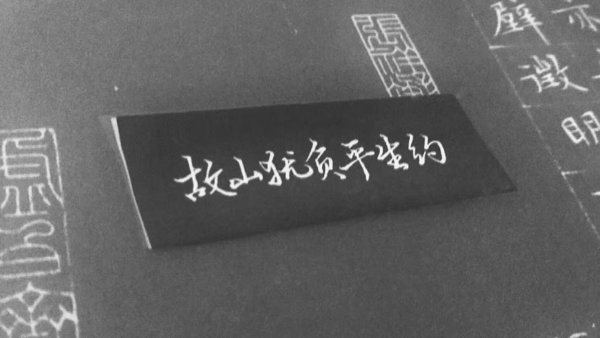 故山犹负平生约
璧
徵
明
亦